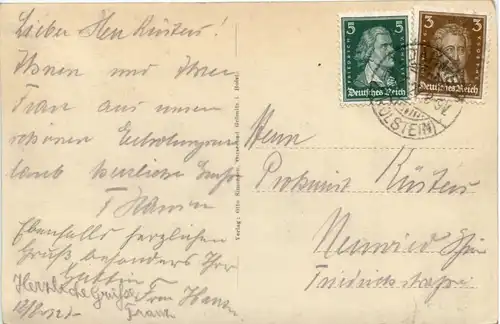 Lieber Herr Küsters!
Ihnen und Ihrer
Frau aus unserm
schönen Erholungsur-
laub herzliche Grüße
F Hansen
Ebenfalls herzlichen
Gruß besonders Ihrer
Gattin
Frau Hansen
Herzliche Grüße
Franz
Verlag: Otto
5 5
FRIEDRICH
Deutsches Reich
3 3
Deutsches Reich
(HOLSTEIN)
Herrn
Prokurist Küsters
Neuwied
Friedrichstraße